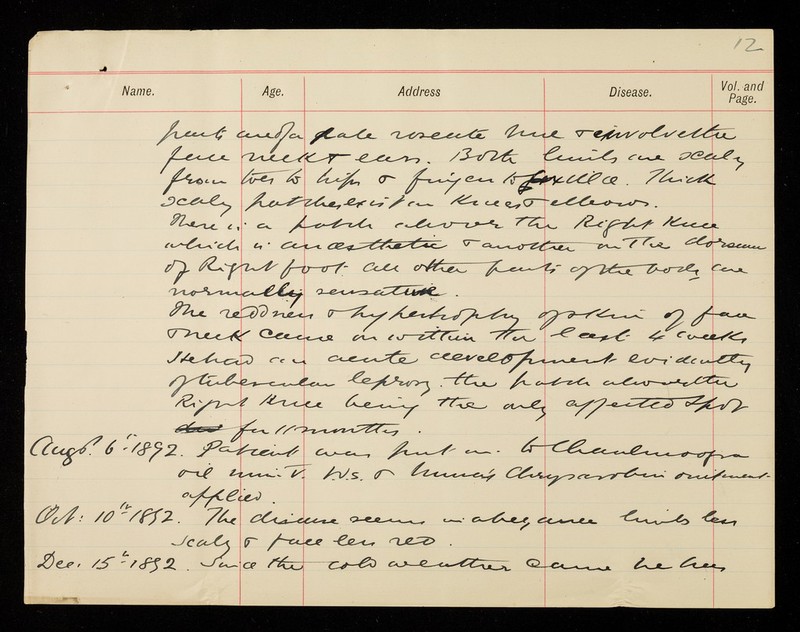 12
Name. Age. Address Disease. Vol. and Page.
parts are of a pale roseate hue & involve the
face neck & ears. Both limbs are scaly
from toes to hips & fingers to axillae. Thick
scaly patches exist on Knees & elbows.
There is a patch above the Right Knee
which is anæsthetic & another on the dorsum
of Right foot. All other parts of the body are
normally sensative.
The redness & hypertrophy of skin of face
& neck came on within the last 4 weeks
He had an acute development evidently
of tubercular leprosy. the patch above the
Right Knee being the only affected spot
for 11 months.
Augst. 6th 1892. Patient was put on to Chaulmoogra
oil min: V. t.d.s. & Unna's Chrysarobin ointment
applied.
Oct: 10th 1892. The disease seems in abeyance limbs less
scaly & face less red.
Dec. 15th 1892. Since the cold weather came he has